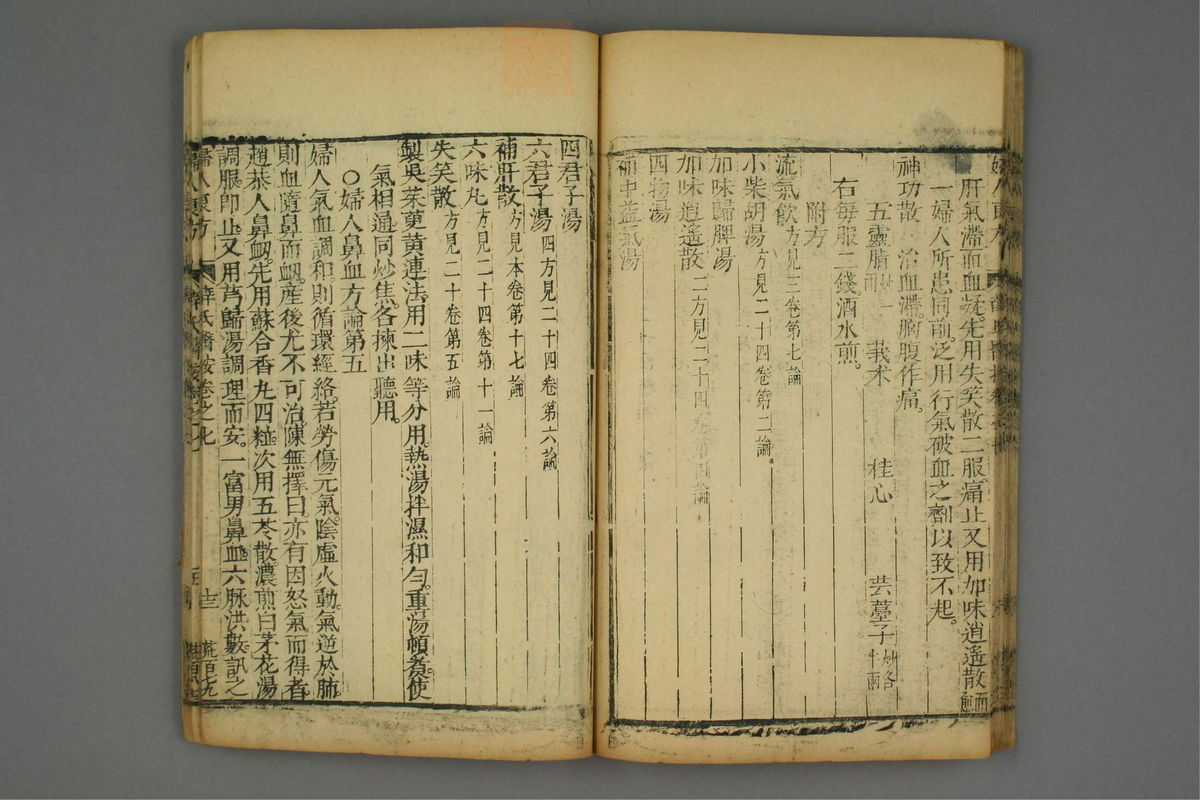 肝氣滯而血凝先用失笑散二服痛止又用加味逍遙散而愈
一婦人所患同前泛用行氣破血之劑以致不起
神功散 治血滯胸腹作痛
五靈脂炒一兩 莪朮 桂心 芸薹子炒各半兩
右每服二錢酒水煎
附方
流氣飲方見三卷第七論
小柴胡湯方見二十四卷第二論
加味歸脾湯
加味逍遙散二方見二十四卷第四論
四物湯
補中益氣湯
四君子湯
六君子湯四方見二十四卷第六論
補肝散方見本卷第十七論
六味丸方見二十四卷第十一論
失笑散方見二十卷第五論
製吳茱萸黃連法用二味等分用熱湯拌濕和勻重湯頓煮使
氣相通同炒焦各揀出聽用
○婦人鼻血方論第五
婦人氣血調和則循環經絡若勞傷元氣陰虛火動氣逆於肺
則血隨鼻而衂產後尤不可治陳無擇曰亦有因怒氣而得者
趙恭人鼻衂先用蘇合香丸四粒次用五苓散濃煎白茅花湯
調服即止又用芎歸湯調理而安一富男鼻血六脉洪數訊之
婦人良方 薛氏醫按卷之七